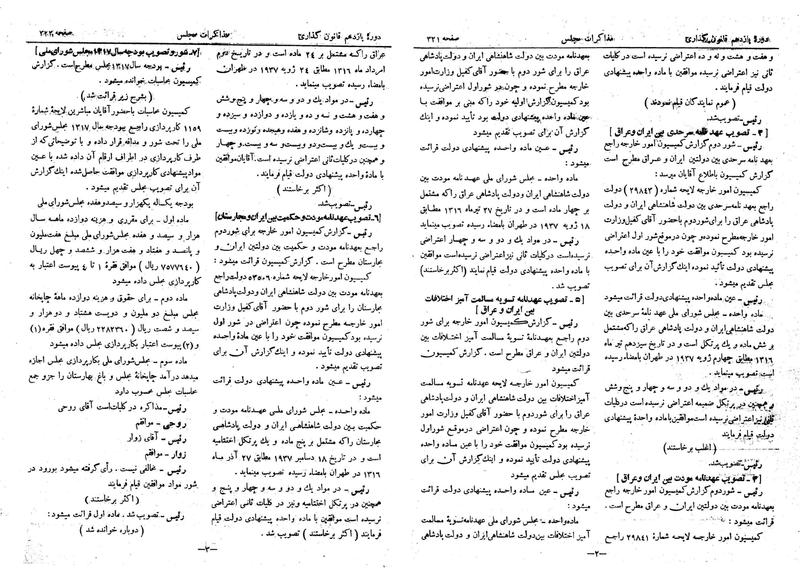 دورهٔ یازدهم قانون‌گذاری
مذاکرات مجلس
صفحه ۳۲۱
و هفت و هشت و نه و ده اعتراضی نرسیده است در کلیات
ثانی نیز اعتراضی نرسیده موافقین با ماده واحده پیشنهادی
دولت قیام فرمایند.
(عموم نمایندگان قیام نمودند)
رئیس - تصویب شد.
[۳ - تصویب عهدنامه سرحدی بین ایران و عراق]
رئیس - شور دوم گزارش کمیسیون امور خارجه راجع
بعهدنامه سرحدی بین ایران و عراق مطرح است
گزارش کمیسیون باطلاع آقایان میرسد:
کمیسیون امور خارجه لایحه شماره (۲۹۸۴۲) دولت
راجع بعهدنامه سرحدی بین دولت شاهنشاهی ایران و دولت پادشاهی
عراق را برای شور دوم با حضور آقای کفیل وزارت
امور خارجه مطرح نموده و چون در موقع شور اول اعتراضی
نرسیده بود کمیسیون موافقت خود را با عین ماده واحده
پیشنهادی دولت تأیید نموده و اینک گزارش آن برای تصویب
مجلس تقدیم میشود.
رئیس - عین ماده واحده پیشنهادی دولت قرائت میشود
ماده واحده - مجلس شورای ملی عهدنامهٔ سرحدی بین
دولت شاهنشاهی ایران و دولت پادشاهی عراق را که مشتمل
بر شش ماده و یک پرتکل است و در تاریخ سیزدهم تیر ماه
۱۳۱۶ مطابق چهارم ژویه ۱۹۳۷ در طهران بامضاء رسیده است
تصویب مینماید.
رئیس - در مواد یک و دو و سه و چهار و پنج و شش
و همچنین در پرتکل ضمیمه اعتراضی نرسیده است در کلیات
ثانی نیز اعتراضی نرسیده است موافقین با ماده واحدهٔ پیشنهادی
دولت قیام فرمایند
(اغلب برخاستند)
رئیس - تصویب شد.
[۴ - تصویب عهدنامه مودت بین ایران و عراق]
رئیس - شور دوم گزارش کمیسیون امور خارجه راجع
بعهدنامه مودت بین دولتین ایران و عراق مطرح است.
گزارش کمیسیون قرائت میشود:
کمیسیون امور خارجه لایحه شمارهٔ ۲۹۸۴۱ راجع
بعهدنامه مودت بین دولت شاهنشاهی ایران و دولت پادشاهی
عراق را برای شور دوم با حضور آقای کفیل وزارت امور
خارجه مطرح نموده و چون در شور اول اعتراضی نرسیده
بود کمیسیون گزارش اولیه خود را که مبنی بر موافقت با
عین ماده واحده پیشنهادی دولت بود تأیید نموده و اینك
گزارش آن برای تصویب تقدیم میشود
رئیس - عین ماده واحده پیشنهادی دولت قرائت
میشود:
ماده واحده - مجلس شورای ملی عهدنامه مودت بین
دولت شاهنشاهی ایران و دولت پادشاهی عراق را که مشتمل
بر چهار ماده است و در تاریخ ۲۷ تیرماه ۱۳۱۶ مطابق
۱۸ ژویه ۱۹۳۷ در طهران بامضاء رسیده تصویب مینماید.
رئیس - در مواد یك و دو و سه و چهار اعتراضی
نرسیده است در کلیات ثانی نیز اعتراضی نرسیده است موافقین با
ماده واحده پیشنهادی دولت قیام نمایند (اکثر برخاستند)
تصویب شد.
[۵ - تصویب عهدنامه تسویه مسالمت آمیز اختلافات
بین ایران و عراق]
رئیس - گزارش کمیسیون امور خارجه برای شور
دوم راجع بعهدنامهٔ تسویهٔ مسالمت آمیز اختلافات بین
دولتین ایران و عراق مطرح است. گزارش کمیسیون
قرائت میشود
کمیسیون امور خارجه عهدنامه تسویه مسالمت
آمیز اختلافات بین دولت شاهنشاهی ایران و دولت پادشاهی
عراق را برای شور دوم با حضور آقای کفیل وزارت امور
خارجه مطرح نموده و چون اعتراضی در موقع شور اول
نرسیده بود کمیسیون موافقت خود را با عین ماده واحده
پیشنهادی دولت تأیید نموده و اینك گزارش آن برای
تصویب مجلس تقدیم میشود
رئیس - عین ماده واحده پیشنهادی دولت قرائت
میشود:
ماده واحده - مجلس شورای ملی عهدنامه تسویهٔ مسالمت
آمیز اختلافات بین دولت شاهنشاهی ایران و دولت پادشاهی
—۲—
دورهٔ یازدهم قانون گذاری
مذاکرات مجلس
صفحه ۳۲۲
عراق را که مشتمل بر ۲۴ ماده است و در تاریخ دوم
امرداد ماه ۱۳۱۶ مطابق ۲۴ ژویه ۱۹۳۷ در طهران
بامضاء رسیده تصویب مینماید.
رئیس - در مواد یك و دو و سه و چهار و پنج و شش
و هفت و هشت و نه و ده و یازده و دوازده و سیزده و
چهارده و پانزده و شانزده و هفده و هیجده و نوزده و بیست
و بیست و یك و بیست و دو و بیست و سه و بیست و چهار
و همچنین در کلیات ثانی اعتراضی نرسیده است. آقایان موافقین
با مادهٔ واحده پیشنهادی دولت قیام فرمایند.
(اکثر برخاستند)
رئیس - تصویب شد.
[۶ - تصویب عهدنامه مودت و حکمیت بین ایران و مجارستان]
رئیس - گزارش کمیسیون امور خارجه برای شور دوم
راجع بعهدنامه مودت و حکمیت بین دولتین ایران و
مجارستان مطرح است. گزارش کمیسیون قرائت میشود:
کمیسیون امور خارجه لایحه شماره ۳۵۰۰۶ دولت راجع
بعهدنامه مودت بین دولت شاهنشاهی ایران و دولت پادشاهی
مجارستان را برای شور دوم با حضور آقای کفیل وزارت
امور خارجه مطرح نموده چون اعتراضی در شور اول
نرسیده بود کمیسیون موافقت خود را با عین مادهٔ واحده
پیشنهادی دولت تأیید نموده و اینك گزارش آن برای
تصویب تقدیم میشود.
رئیس - عین ماده واحده پیشنهادی دولت قرائت
میشود:
ماده واحده - مجلس شورای ملی عهدنامه مودت و
حکمیت بین دولت شاهنشاهی ایران و دولت پادشاهی
مجارستان را که مشتمل بر پنج ماده و یك پرتکل اختتامیه
است و در تاریخ ۱۸ دسامبر ۱۹۳۷ مطابق ۲۷ آذر ماه
۱۳۱۶ در طهران بامضاء رسیده تصویب مینماید.
رئیس - در مواد یك و دو و سه و چهار و پنج و
همچنین در پرتکل اختتامیه و نیز در کلیات ثانی اعتراضی
نرسیده است موافقین با ماده واحده پیشنهادی دولت قیام
فرمایند (اکثر برخاستند) تصویب شد.
[۷ - شور و تصویب بودجه سال ۱۳۱۷ مجلس شورای ملی]
رئیس - بودجه سال ۱۳۱۷ مجلس مطرح است. گزارش
کمیسیون محاسبات خوانده میشود.
(بشرح زیر قرائت شد)
کمیسیون محاسبات باحضور آقایان مباشرین لایحهٔ شمارهٔ
۱۱۵۹ کارپردازی راجع ببودجه سال ۱۳۱۷ مجلس شورای
ملی را تحت شور و مداقه قرار داده و با توضیحاتی که از
طرف کارپردازی در اطراف ارقام آن داده شده با عین
مواد پیشنهادی کارپردازی موافقت حاصل شده اینك گزارش
آن برای تصویب مجلس تقدیم میشود.
بودجه یکساله یکهزار و سیصد و هفده مجلس شورای ملی
ماده اول - برای مقرری و هزینه دوازده ماهه سال
هزار و سیصد و هفده مجلس شورای ملی مبلغ هفت ملیون
و پانصد و هفتاد و هفت هزار و ششصد و چهل ریال
(۷۵۷۷۶۴۰ ریال) موافق فقرهٔ ۱ تا ۴ پیوست اعتبار به
کارپردازی مجلس داده میشود
ماده دوم - برای حقوق و هزینه دوازده ماههٔ چاپخانه
مجلس مبلغ دو ملیون و دویست هشتاد و دو هزار و
سیصد و شصت ریال (۲۲۸۲۳۶۰ ریال) موافق فقره (۱)
و (۲) پیوست اعتبار بکارپردازی مجلس داده میشود
ماده سوم - مجلس شورای ملی بکارپردازی مجلس اجازه
میدهد درآمد چاپخانهٔ مجلس و باغ بهارستان را جزو جمع
محاسبات مجلس محسوب دارد
رئیس - مذاکره در کلیات است آقای روحی
روحی - موافقم
رئیس - آقای زوار
زوار - موافقم
رئیس - مخالفی نیست. رأی گرفته میشود بورود در
شور مواد موافقین قیام فرمایند
(اکثر برخاستند)
رئیس - تصویب شد. ماده اول قرائت میشود:
(دوباره خوانده شد)
—۳—